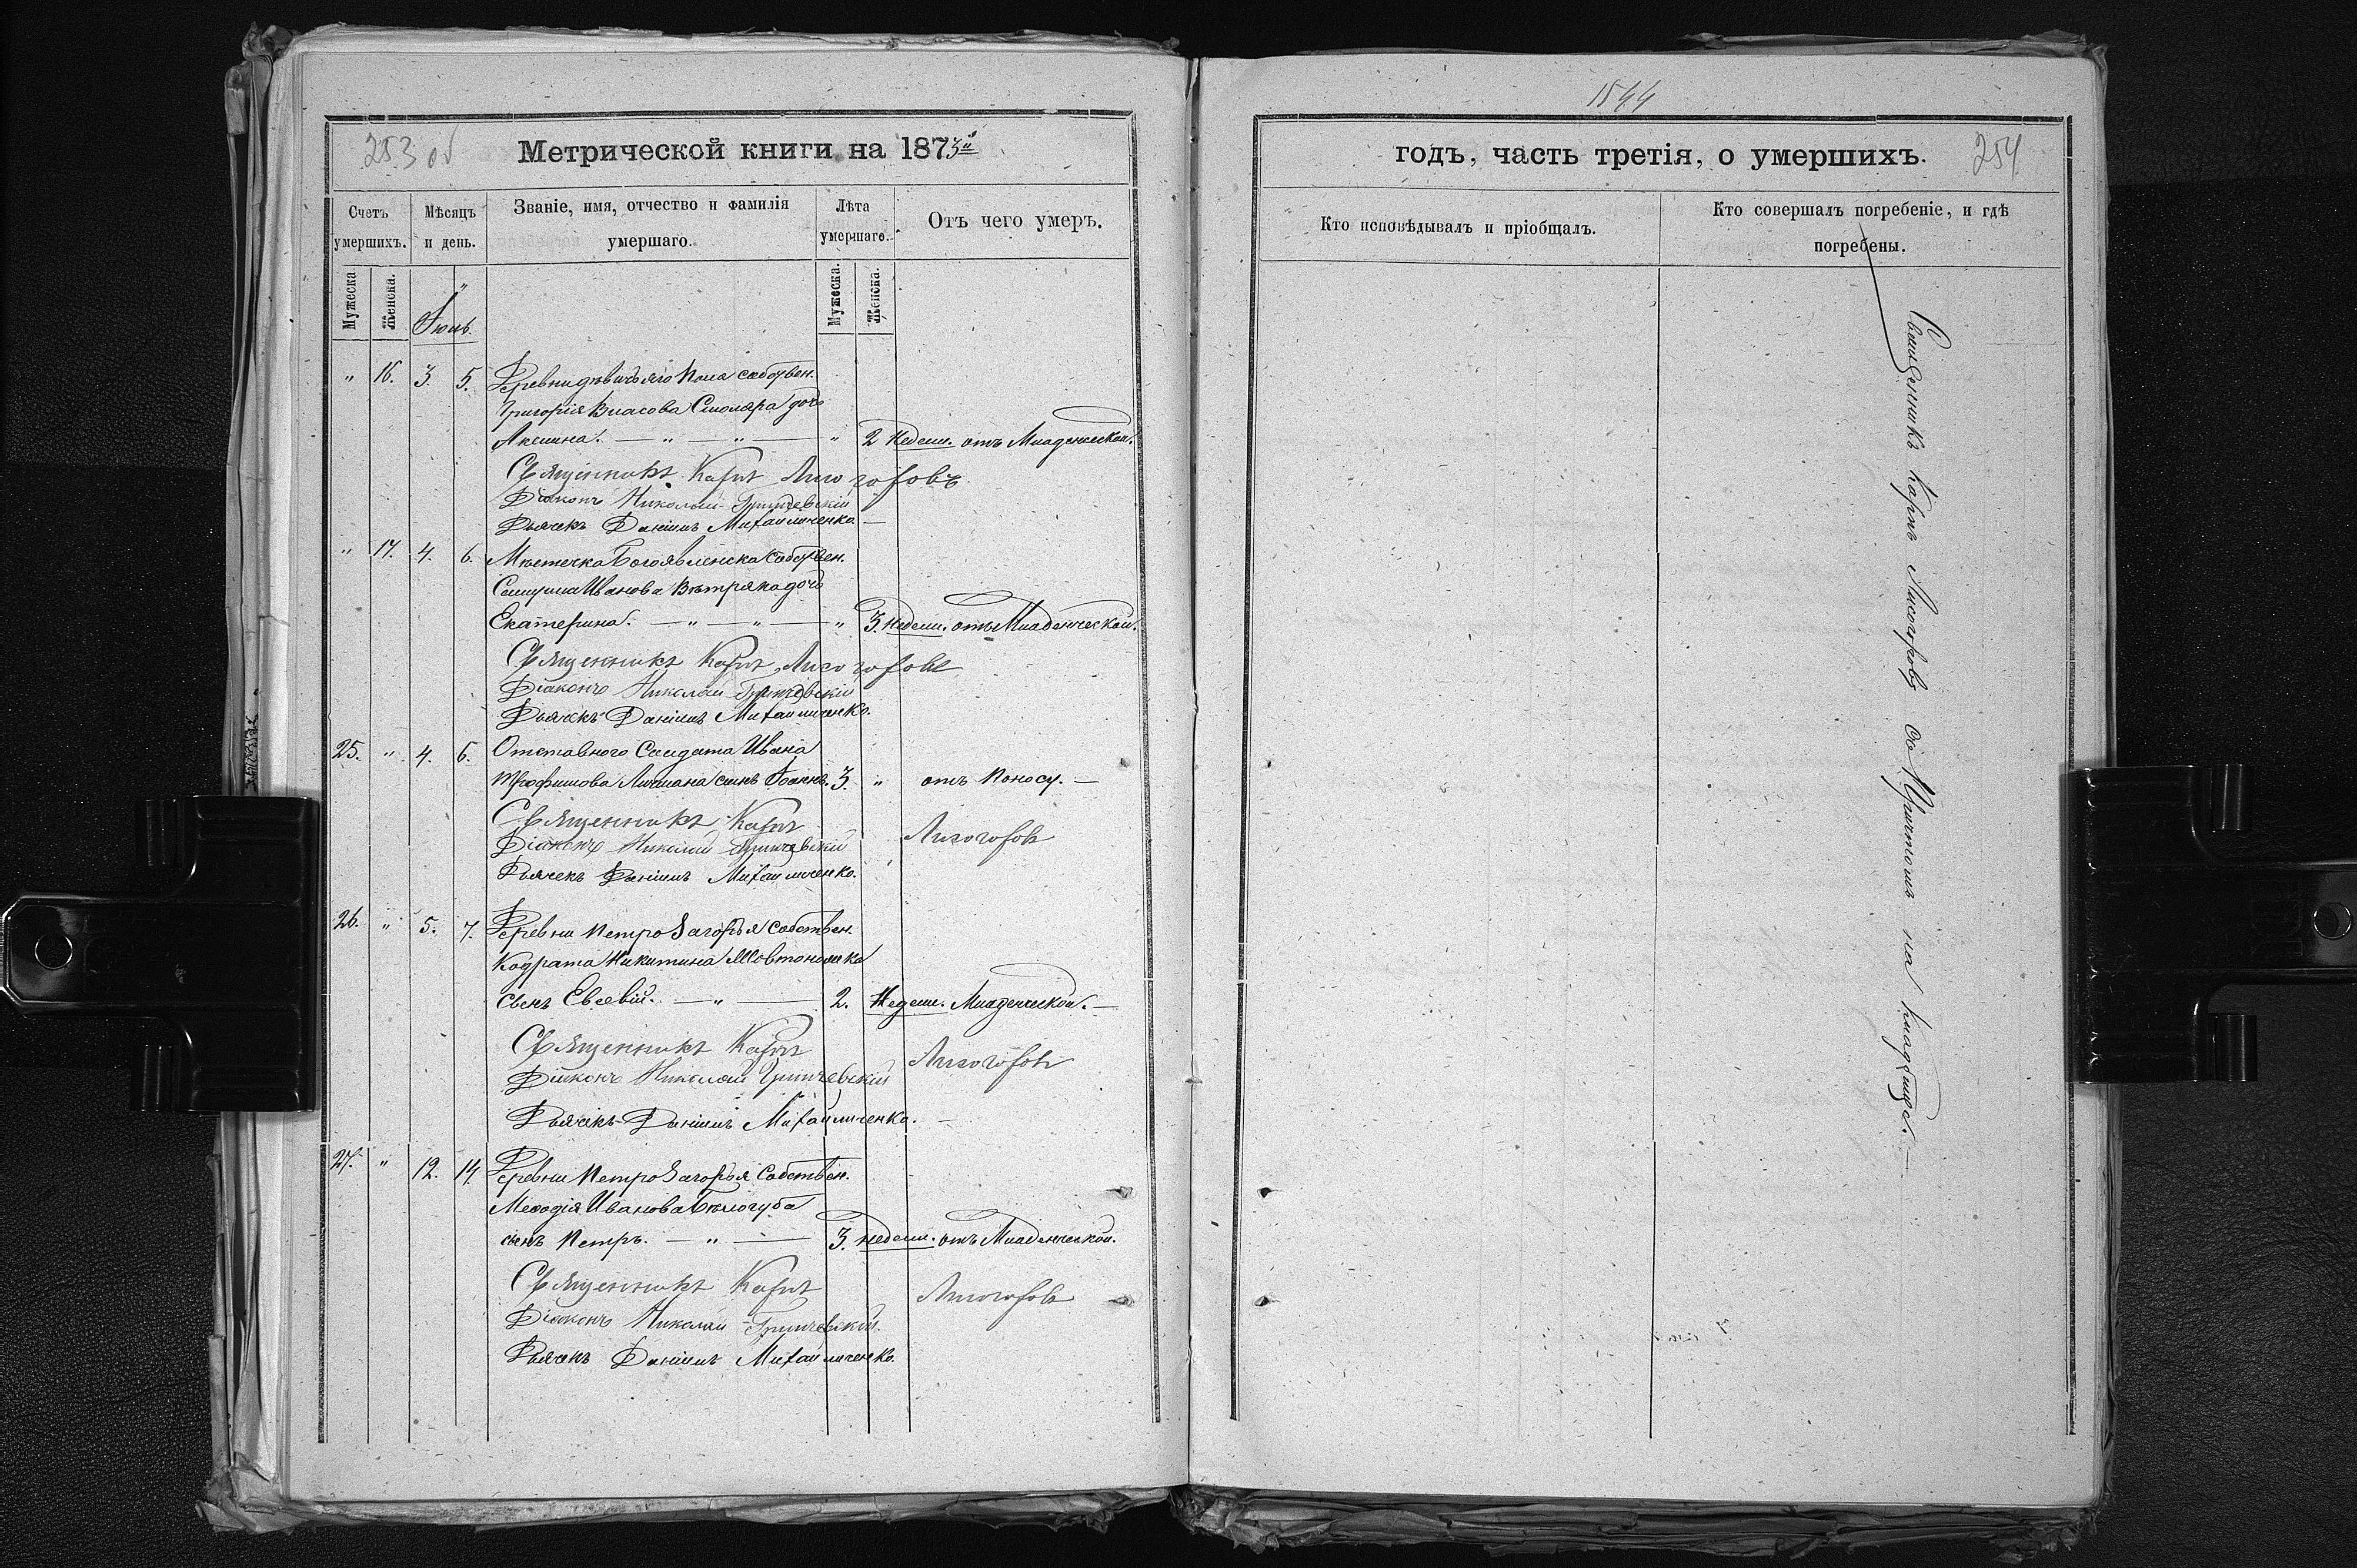 253 об
Метрической книги на 1873й
Счетъ умершихъ.
Мѣсяцъ и день.
Званіе, имя, отчество и фамилія умершаго.
Лѣта умершаго.
Отъ чего умеръ.
Мужеска.
Женска.
Іюнь.
Мужеска.
Женска.
" 16. 3. 5. Деревни Дѣвичьяго Поля собствен.
Григорія Власова Столяра дочь
Акилина. — " — " — " 2 недели. отъ Младенческой.
Священникъ Карпъ Лисогоровъ
Діаконъ Николай
Дьячекъ Даніилъ Михайличенко —
" 17. 4. 6. Мѣстечка Богоявленска собствен.
Иванова Вѣтряка дочь
Екатерина. — " — " — " 3. недели. отъ Младенческой.
Священникъ Карпъ Лисогоровъ
Діаконъ Николай
Дьячекъ Даніилъ Михайличенко.
25. " 4. 6. Отставного Солдата Ивана
Трофимова сынъ Іоаннъ. 3. " отъ Поносу. —
Священникъ Карпъ Лисогоровъ
Діаконъ Николай
Дьячекъ Даніилъ Михайличенко.
26. " 5. 7. Деревни Петро Загорья собствен.
Кодрата Никитина
сынъ Евсевій. — " — 2. Недели. Младенческой. —
Священникъ Карпъ Лисогоровъ
Діаконъ Николай
Дьячекъ Даніилъ Михайличенко. —
27. " 12. 14. Деревни Петро Загорья Собствен.
Меѳодія Иванова Бѣлогуба
сынъ Петръ. — " — 3. недели. отъ Младенческой.
Священникъ Карпъ Лисогоровъ
Діаконъ Николай
Дьячекъ Даніилъ Михайличенко.
1544
годъ, часть третія, о умершихъ. 254
Кто исповѣдывалъ и пріобщалъ.
Кто совершалъ погребеніе, и гдѣ погребены.
Священникъ Карпъ Лисогоровъ со Причтомъ на кладбище. —